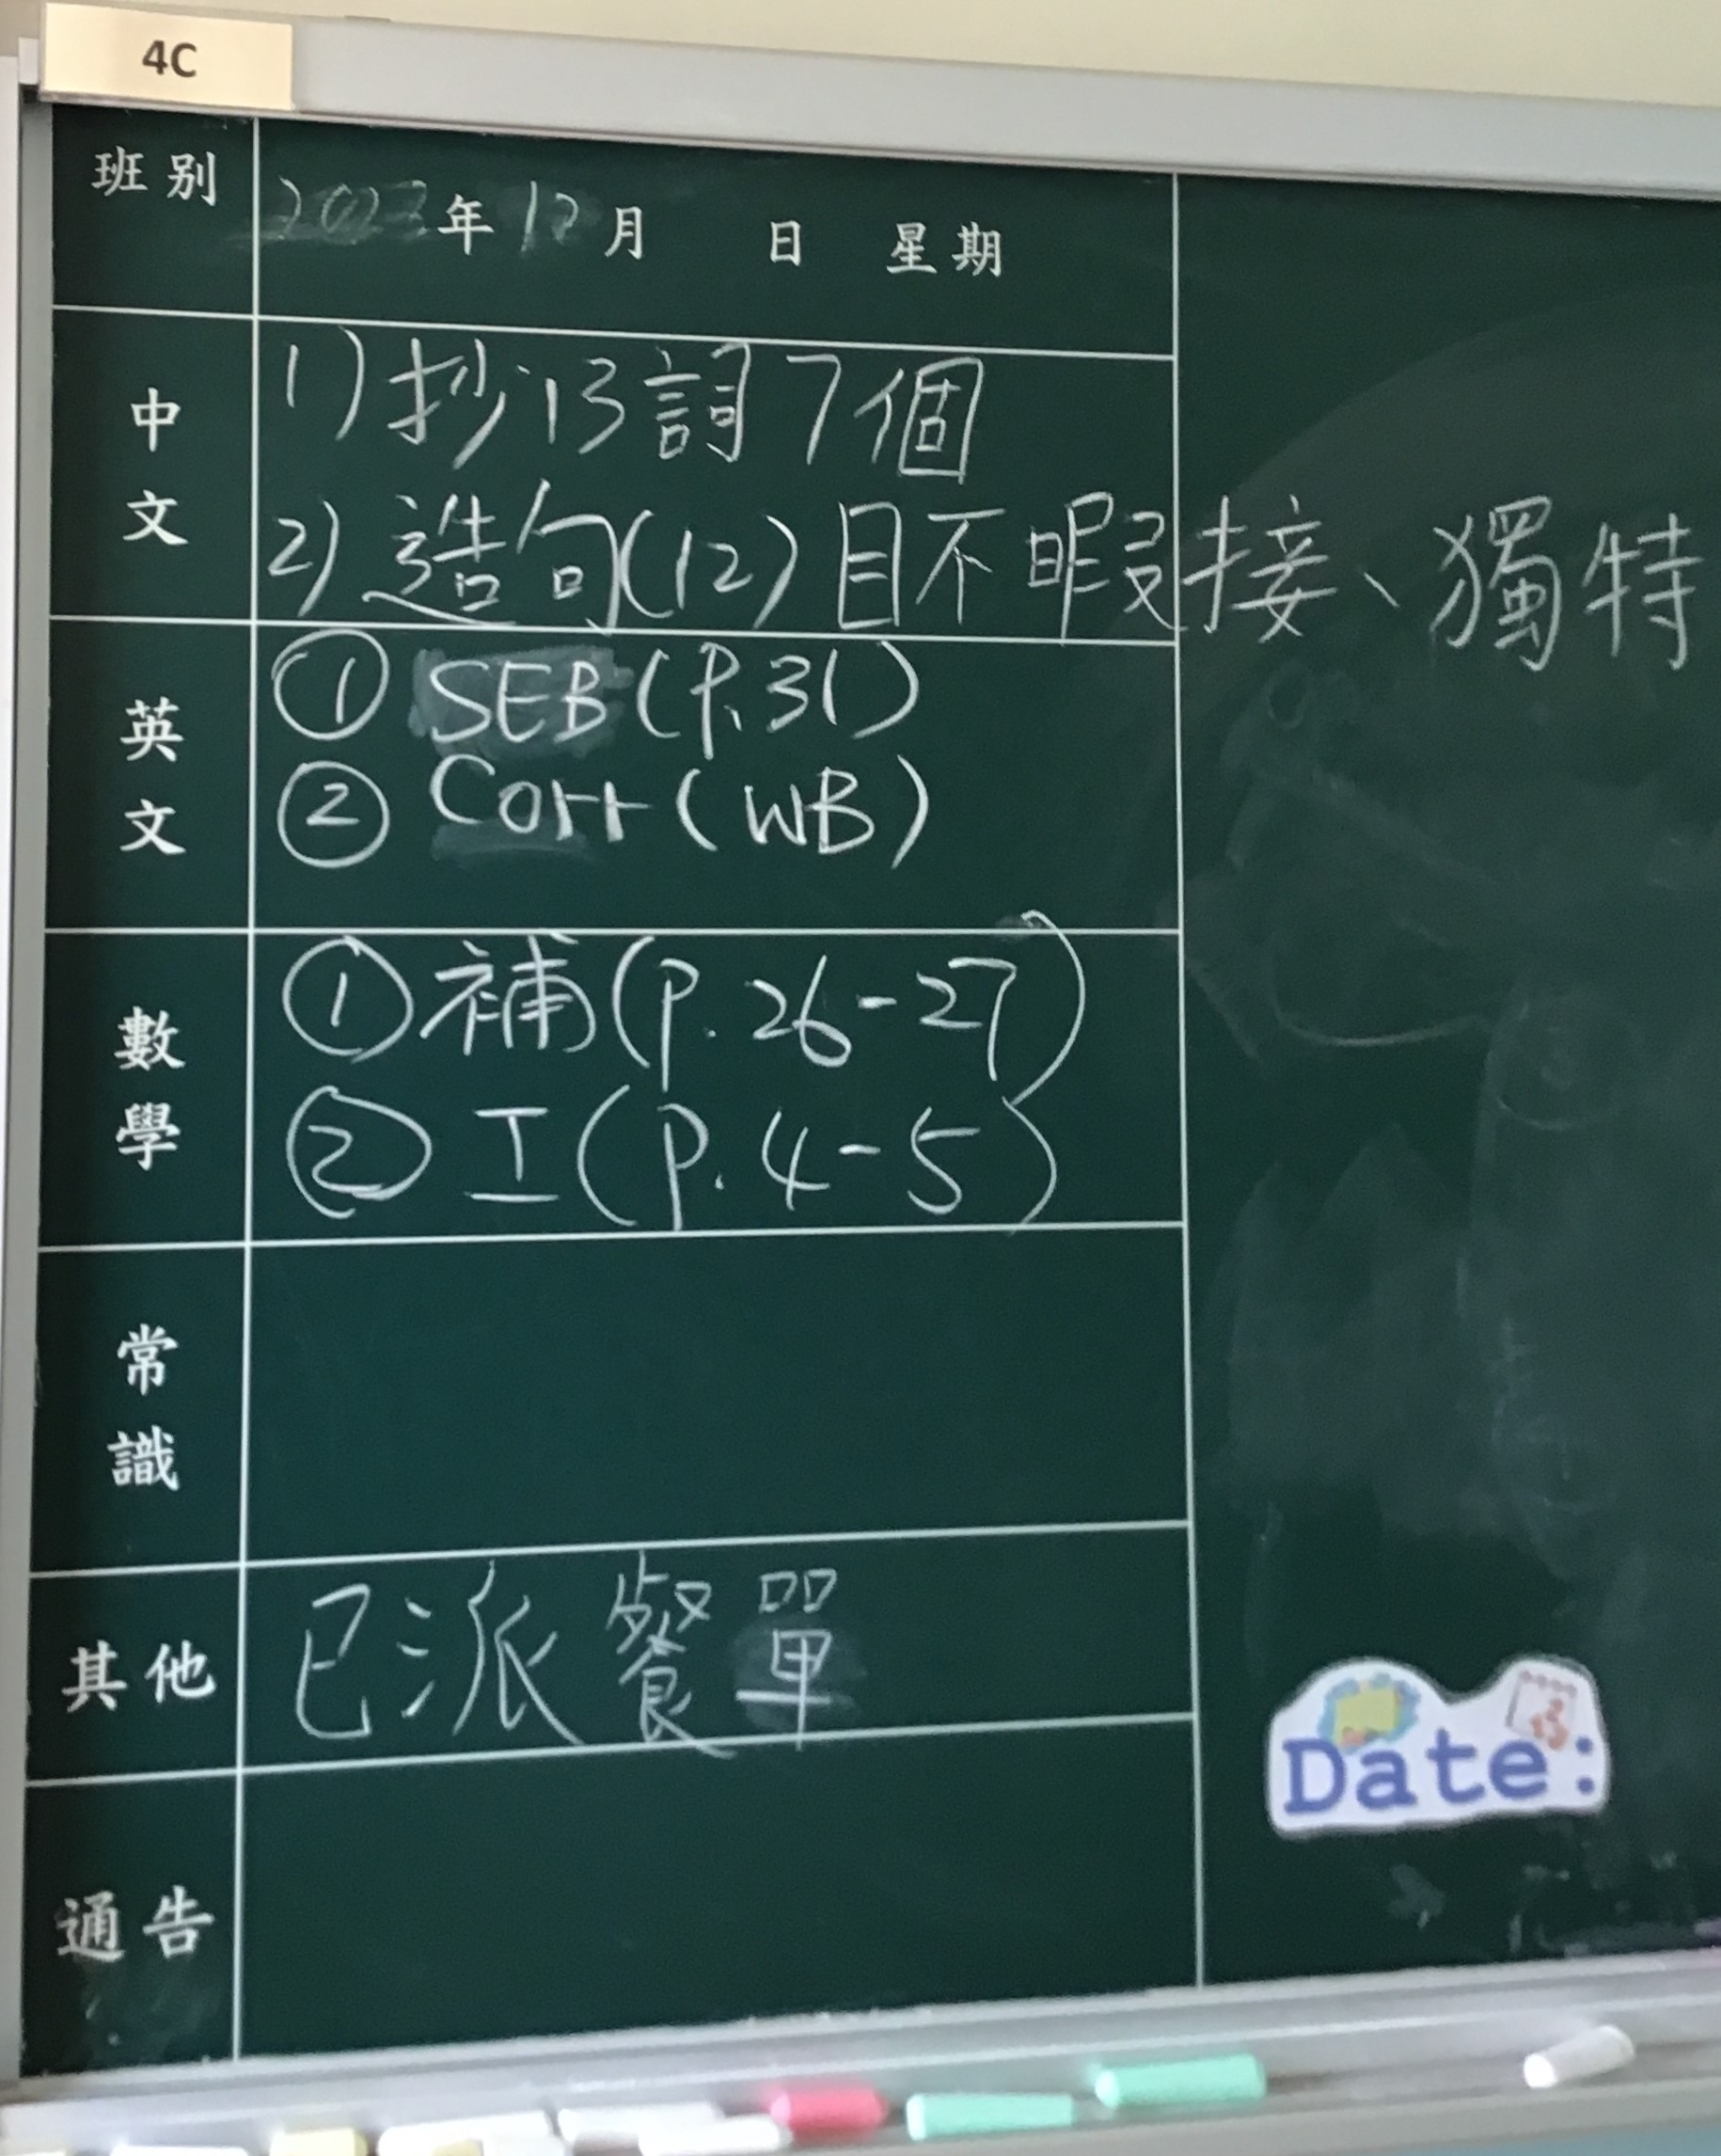 4C
班別 2023年12月 日 星期
中文
1) 抄13詞7個
2) 造句(12)目不暇接、獨特
英文
① SEB (P.31)
② Corr (WB)
數學
① 補(P.26-27)
② 工(P.4-5)
常識
其他
已派餐單
通告
Date: